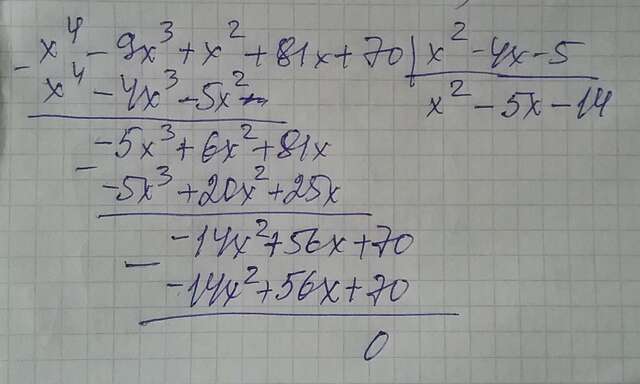 x⁴ - 9x³ + x² + 81x + 70 | x² - 4x - 5
- x⁴ - 4x³ - 5x² | x² - 5x - 14
-5x³ + 6x² + 81x
- -5x³ + 20x² + 25x
-14x² + 56x + 70
- -14x² + 56x + 70
0